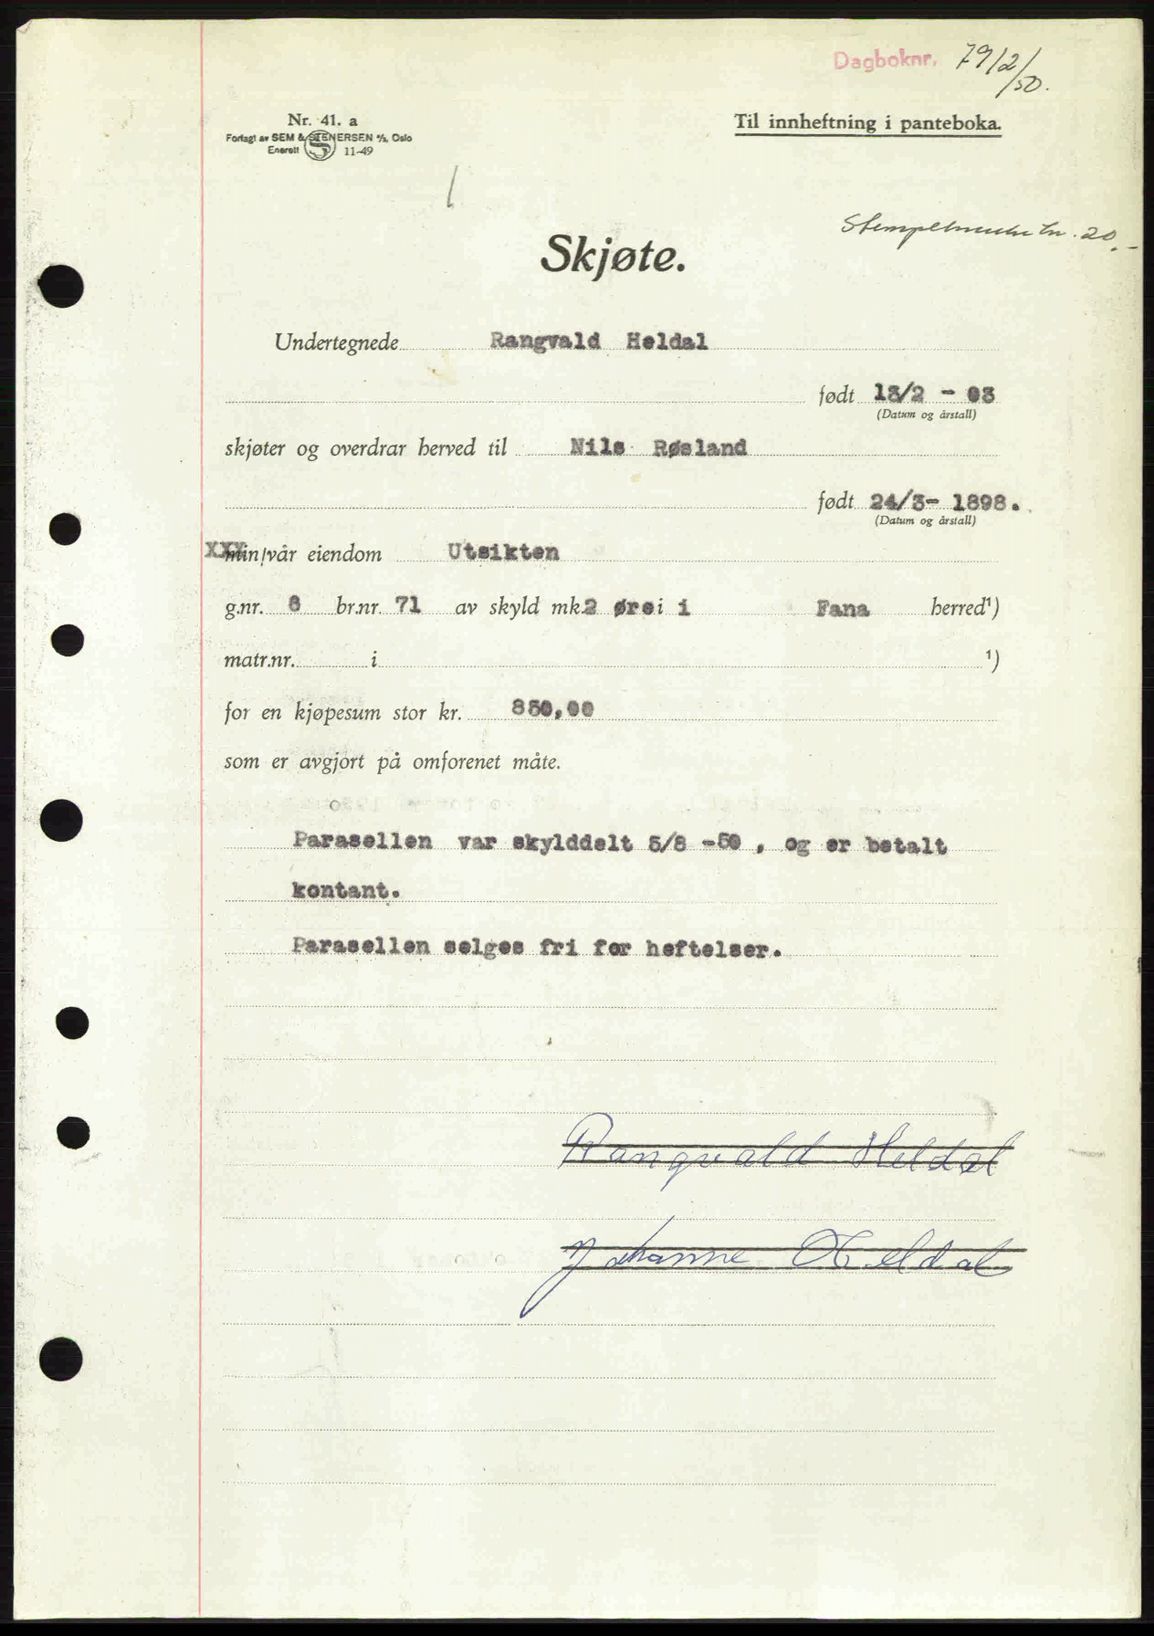 Dagboknr. 79/2/50.
Nr. 41. a
Forlagt av SEM & STENERSEN A/S, Oslo
Enerett S 11-49
Til innheftning i panteboka.
kr. 20,-
Skjøte.
Undertegnede Rangvald Heldal
født 13/2 - 03
(Datum og årstall)
skjøter og overdrar herved til Nils Røsland
født 24/3- 1898.
(Datum og årstall)
XXX min/vår eiendom Utsikten
g.nr. 8 br.nr. 71 av skyld mk. 2 øre i i Fana herred¹)
matr.nr. i ¹)
for en kjøpesum stor kr. 850,00
som er avgjort på omforenet måte.
Parasellen var skylddelt 5/8 -50 , og er betalt
kontant.
Parasellen selges fri for heftelser.
Rangvald Heldal
Johanne Heldal